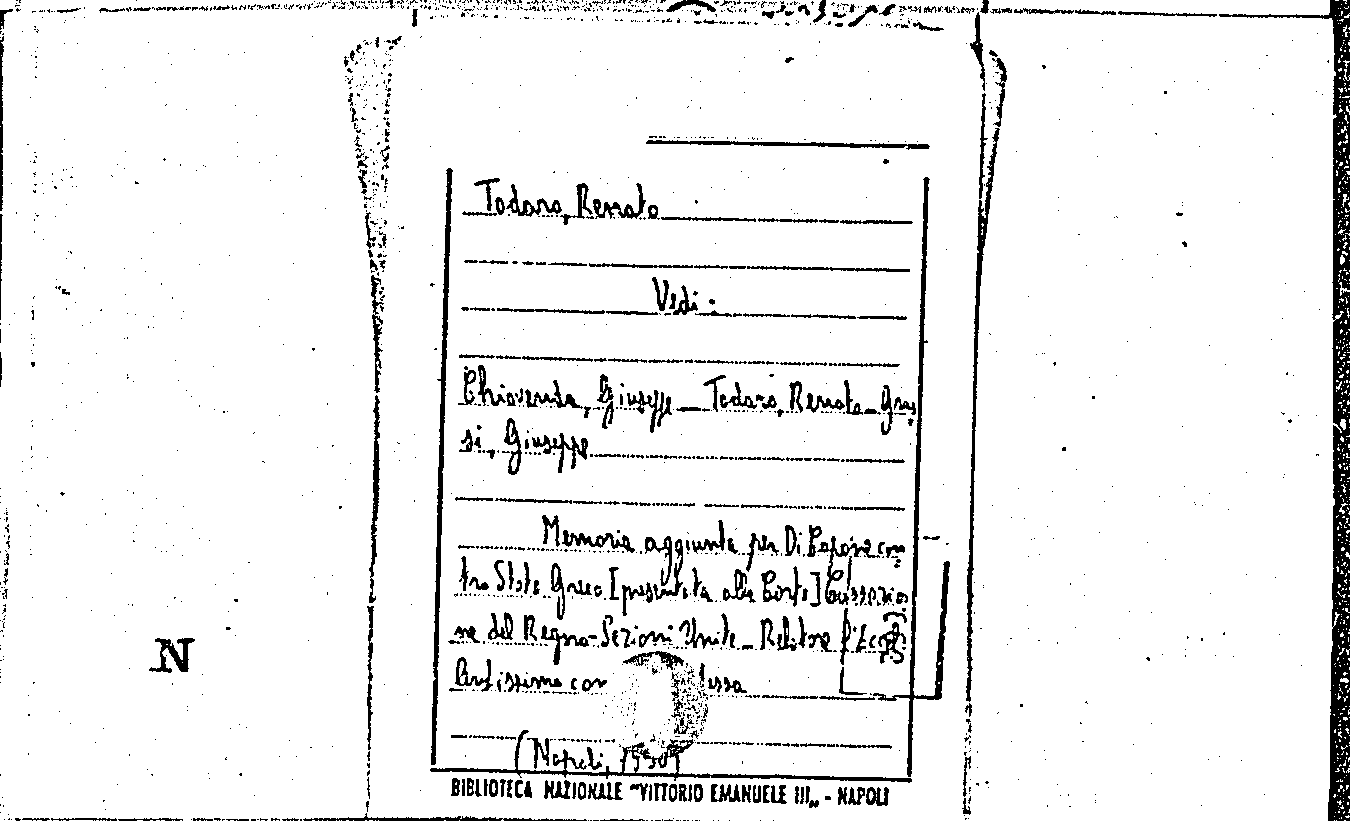 Todaro, Renato
Vedi :
Chiovenda, Giuseppe _ Todaro, Renato _ Gras
si, Giuseppe
Memoria aggiunta per Di Capone con
tro Stato Greco [presentata alla Corte] Cassazio
ne del Regno - Sezioni Unite _ Relatore l'Ecce
lentissimo
(Napoli, 1930)
N
BIBLIOTECA NAZIONALE "VITTORIO EMANUELE III„ - NAPOLI